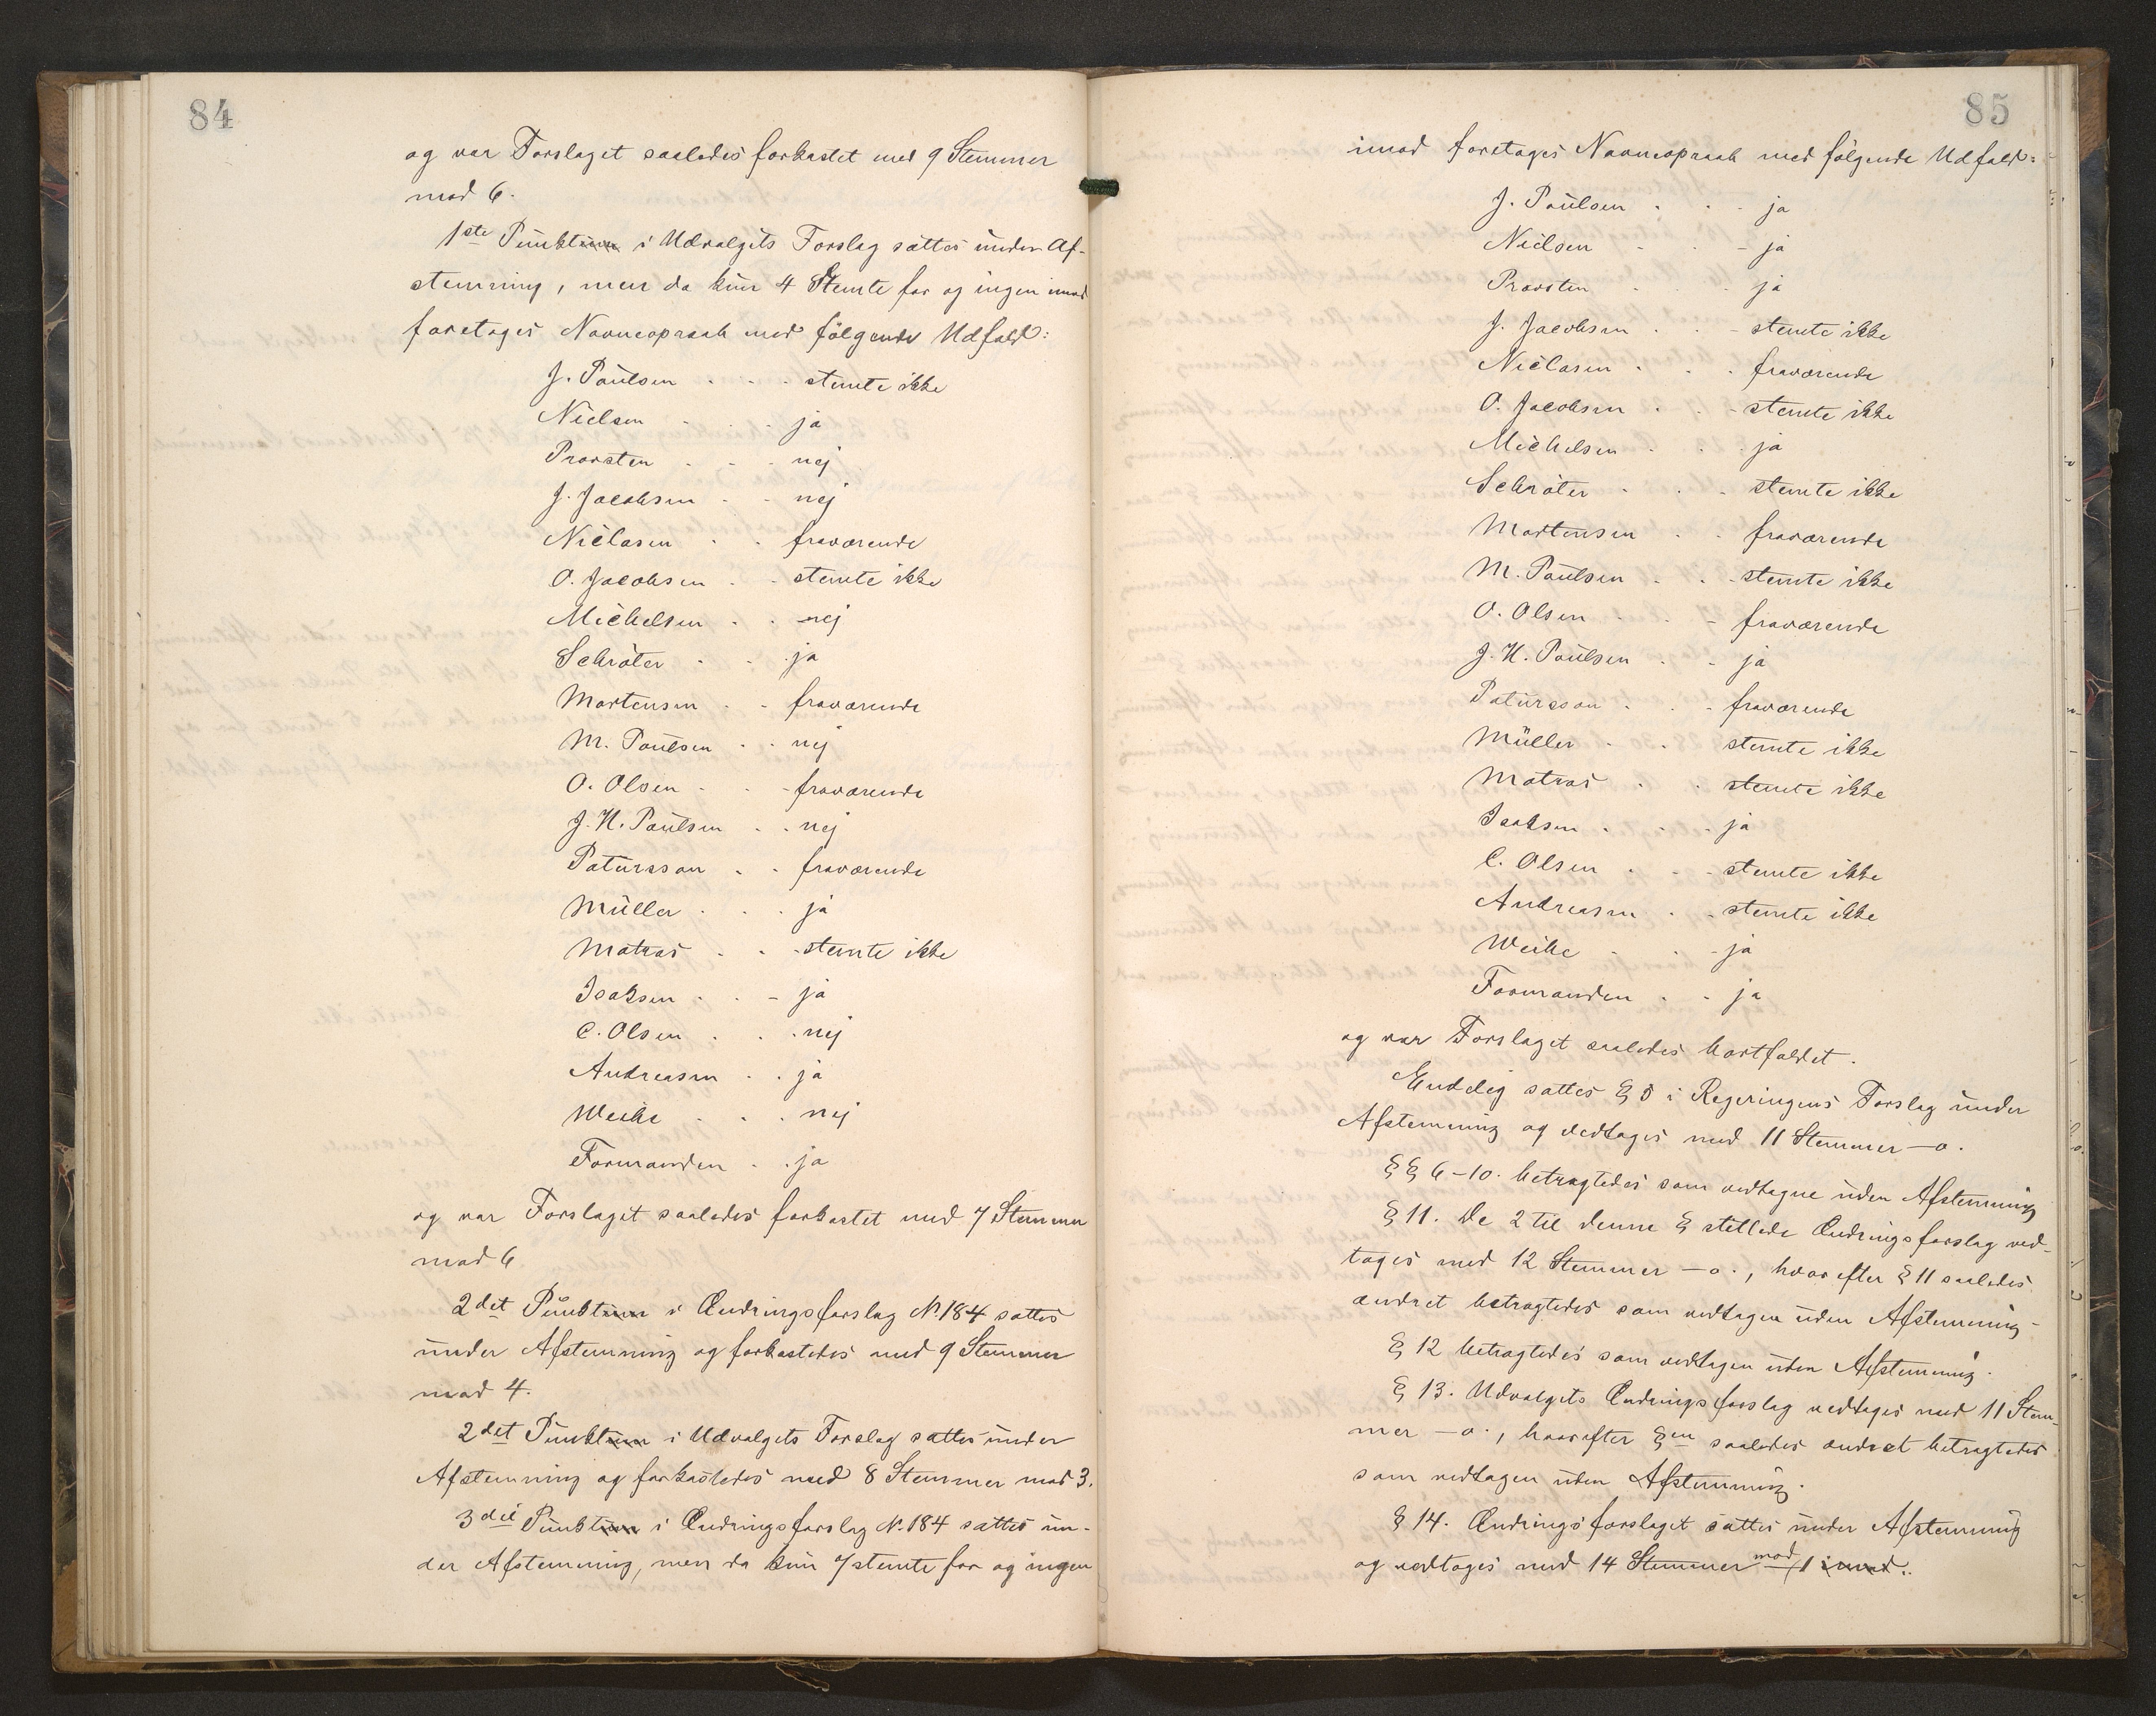 84
og var Forslaget saaledes forkastet med 9 Stemmer
mod 6.
1ste Punktum i Udvalgets Forslag sattes under Af-
stemning, men da kun 4 stemte for og ingen imod
foretoges Navneopraab med følgende Udfald:
J. Poulsen . . . stemte ikke
Nielsen . . . ja
Provsten . . . nej
J. Jacobsen . . nej
Niclasen . . fraværende
O. Jacobsen . . stemte ikke
Michelsen . . nej
Schrøter . . . ja
Mortensen . . fraværende
M. Poulsen . . nej
O. Olsen . . . fraværende
J. H. Poulsen . . nej
Patursson . . fraværende
Müller . . . ja
Matras . . . stemte ikke
Isaksen . . . ja
C. Olsen . . . nej
Andreasen . . ja
Weihe . . . nej
Formanden . . ja
og var Forslaget saaledes forkastet med 7 Stemmer
mod 6
2det Punktum i Ændringsforslag N. 184 sattes
under Afstemning og forkastedes med 9 Stemmer
mod 4.
2det Punktum i Udvalgets Forslag sattes under
Afstemning og forkastedes med 8 Stemmer mod 3.
3die Punktum i Ændringsforslag N. 184 sattes un-
der Afstemning, men da kun 7 stemte for og ingen
85
imod foretoges Navneopraab med følgende Udfald:
J. Poulsen . . . ja
Nielsen . . . ja
Provsten . . . ja
J. Jacobsen . . . stemte ikke
Niclasen . . . fraværende
O. Jacobsen . . . stemte ikke
Michelsen . . . ja
Schrøter . . . stemte ikke
Mortensen . . fraværende
M. Poulsen . . . stemte ikke
O. Olsen . . . fraværende
J. H. Poulsen . . ja
Patursson . . . fraværende
Müller . . . stemte ikke
Matras . . stemte ikke
Isaksen . . . ja
C. Olsen . . . stemte ikke
Andreasen . . stemte ikke
Weihe . . . ja
Formanden . . ja
og var Forslaget saaledes bortfaldet.
Endelig sattes § 5 i Regeringens Forslag under
Afstemning og vedtoges med 11 Stemmer – o.
§ § 6 – 10. betragtedes som vedtagne uden Afstemning
§ 11. De 2 til denne § stillede Ændringsforslag ved-
toges med 12 Stemmer – o., hvorefter § 11 saaledes
ændret betragtedes som vedtagen uden Afstemning –
§ 12 betragtedes som vedtagen uden Afstemning.
§ 13. Udvalgets Ændringsforslag vedtoges med 11 Stem-
mer – o., hvorefter §en saaledes ændret betragtedes
som vedtagen uden Afstemning.
§ 14. Ændringsforslaget sattes under Afstemning
og vedtoges med 14 Stemmer mod 1 imod.